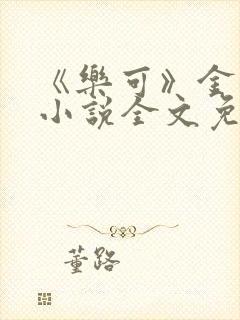 《樂可》金
小說全文免
董路